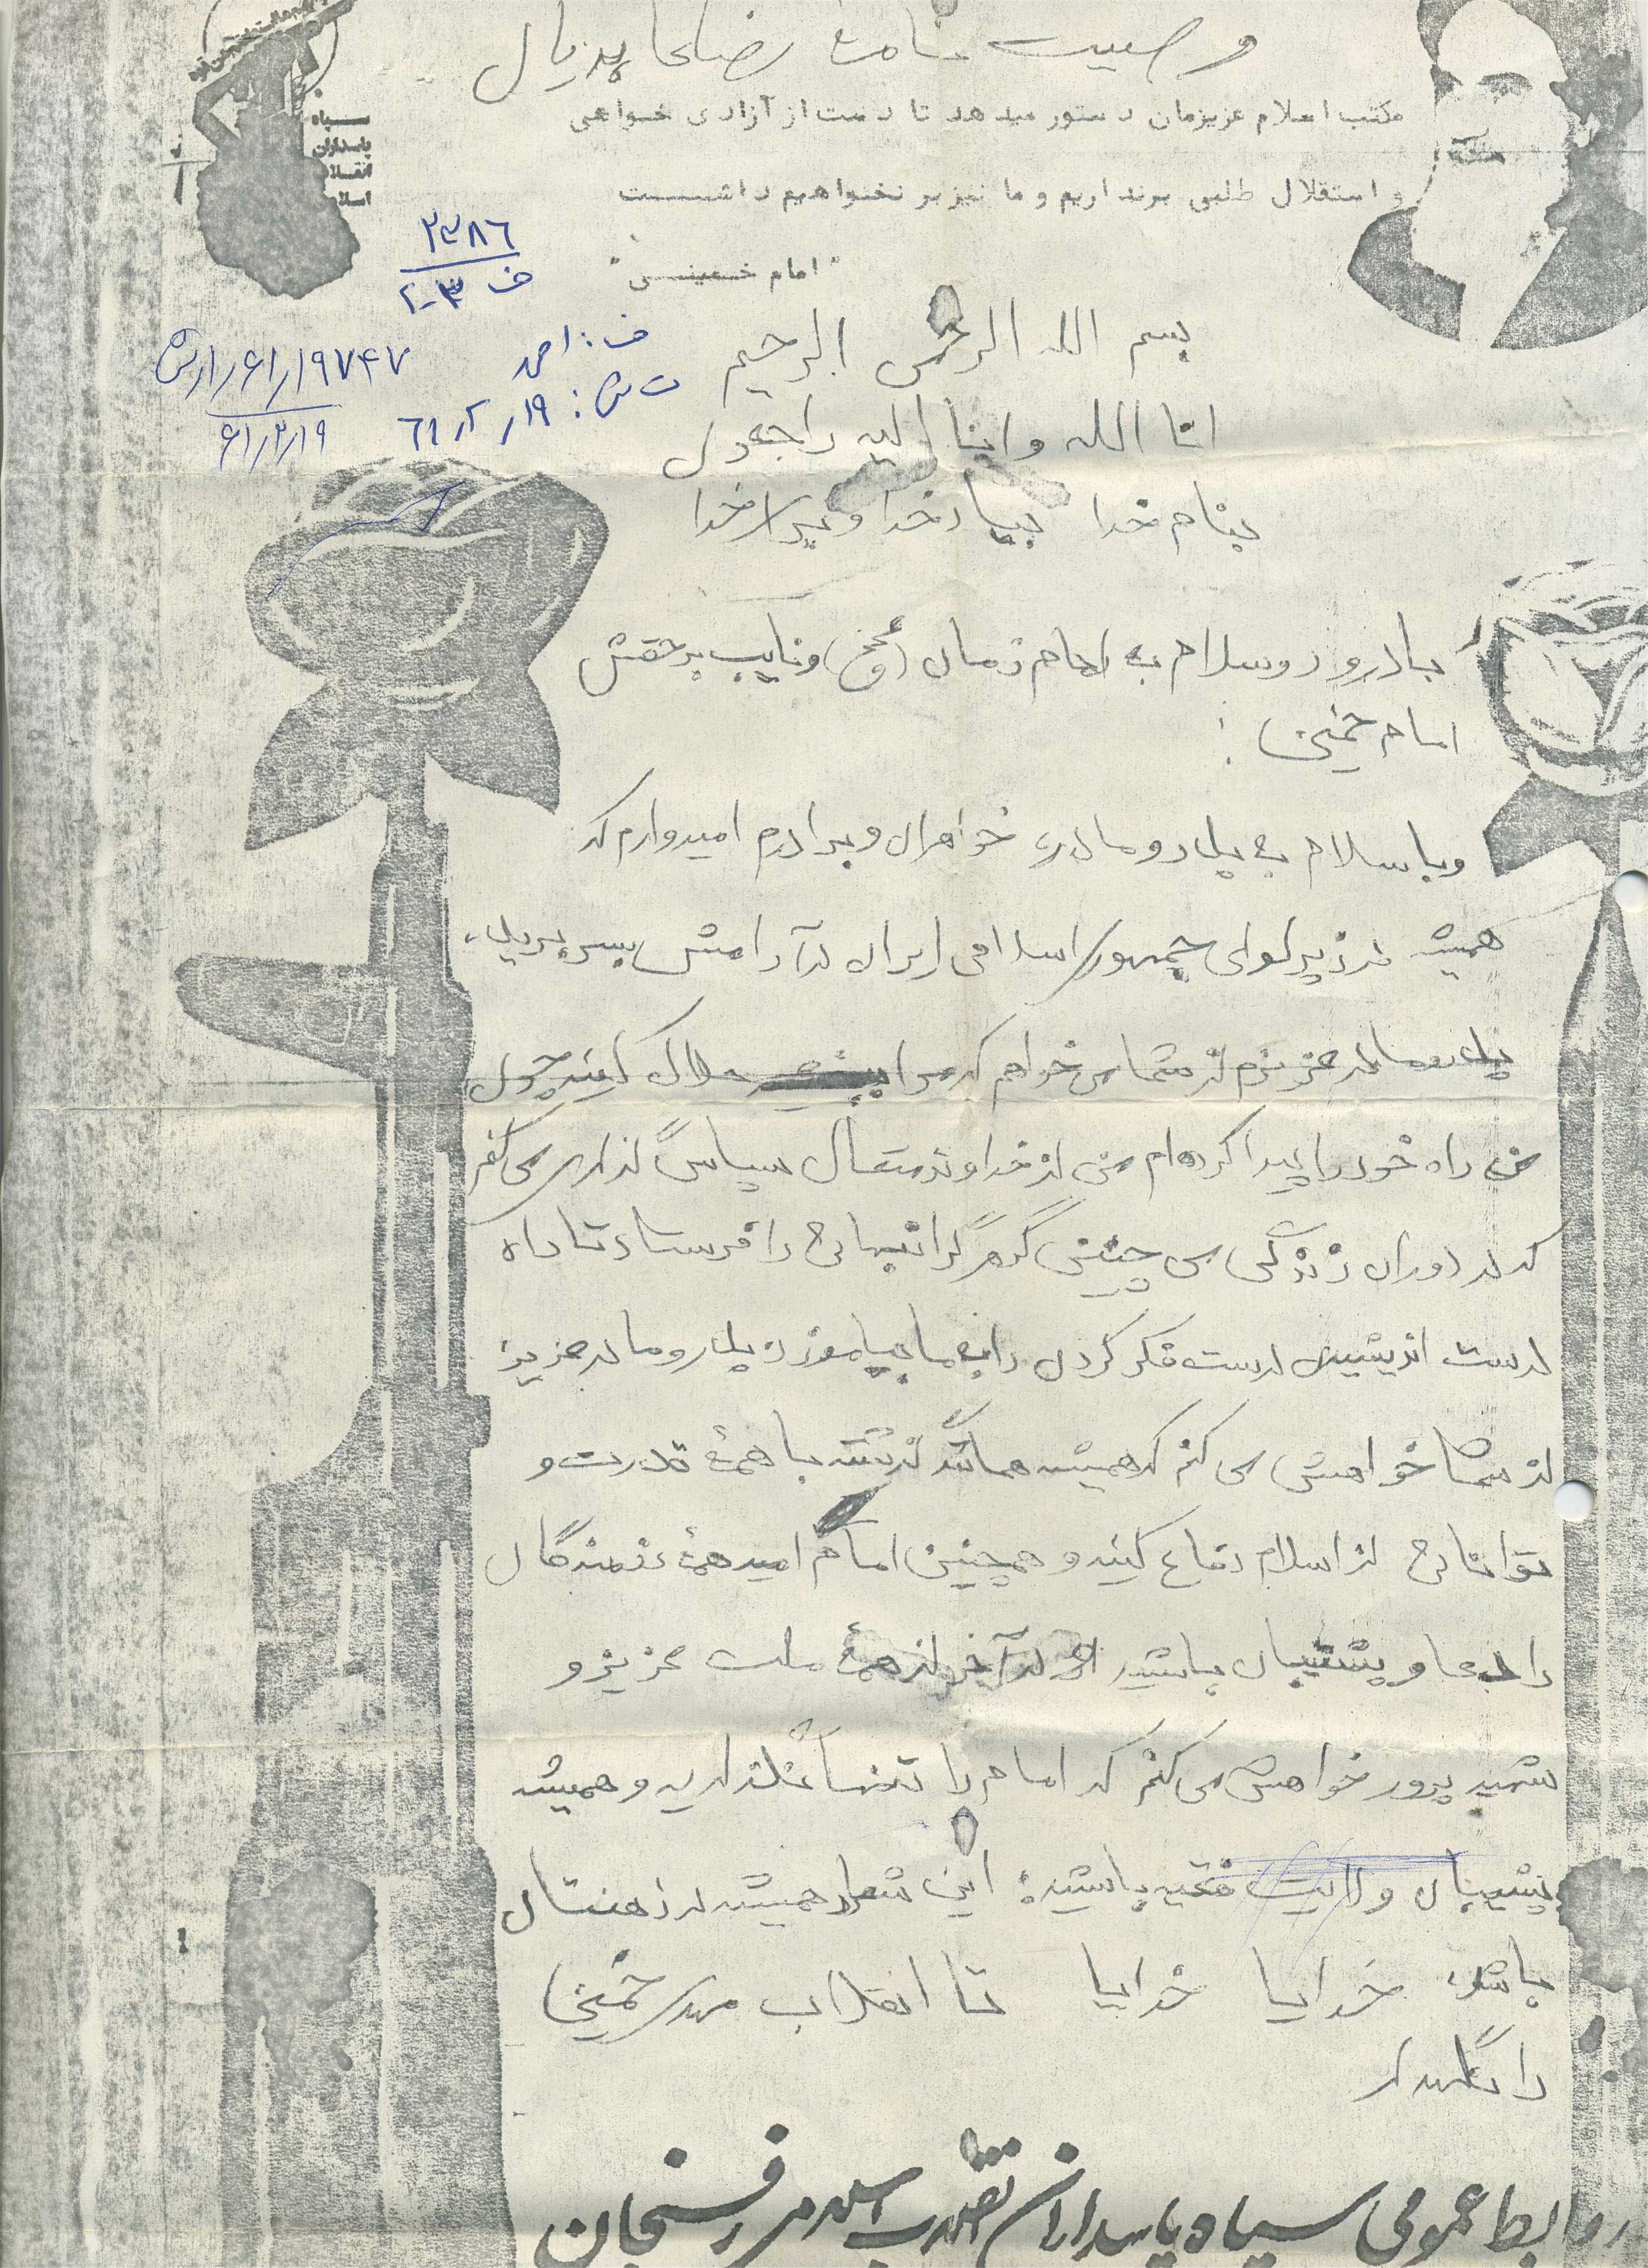 وصیت نامهٔ رضا
مکتب اسلام عزیزمان دستور میدهد تا دست از آزادی خواهی
و استقلال طلبی برنداریم و ما نیز بر نخواهیم داشت
"امام خمینی"
سپاه
پاسداران
انقلا
اسلا
۲۳۸۶
ف ۲۰۳
ف: احمد
ت ش: ۶۱٫۲٫۱۹
۱۹۷۴۷
۶۱/۲/۱۹
بسم الله الرحمن الرحیم
انا الله وانا الیه راجعون
بنام خدا بیاد خدا وبرای خدا
با درود و سلام به امام زمان (عج) و نایب برحقش
امام خمینی :
وبا سلام به پدر و مادرم خواهران و برادرم امیدوارم که
همیشه در زیر لوای جمهوری اسلامی ایران در آرامش بسر برید،
پدر و مادر عزیزم از شما می خواهم که مرا حلال کنید چون
من راه خود را پیدا کرده ام من از خداوند متعال سپاس گذاری می کنم
که در دوران زندگی می چنین گرانبهائی را فرستاد تا راه
درست اندیشیدن درست فکر کردن را به ما بیاموزد پدر و مادر عزیز
از شما خواهش می کنم که همیشه همانند گذشته با همهٔ قدرت و
توانائی از اسلام دفاع کنید و همچنین امام امید همهٔ رزمندگان
را دعا و پشتیبان باشید و در آخر از همهٔ ملت عزیز و
شهید پرور خواهش می کنم که امام را تنها نگذارید و همیشه
پشتیبان ولایت فقیه باشید: این شعار همیشه در ذهنتان
باشد خدایا خدایا تا انقلاب مهدی خمینی
را نگهدار
روابط عمومی سپاه پاسداران انقلاب اسلامی رفسنجان